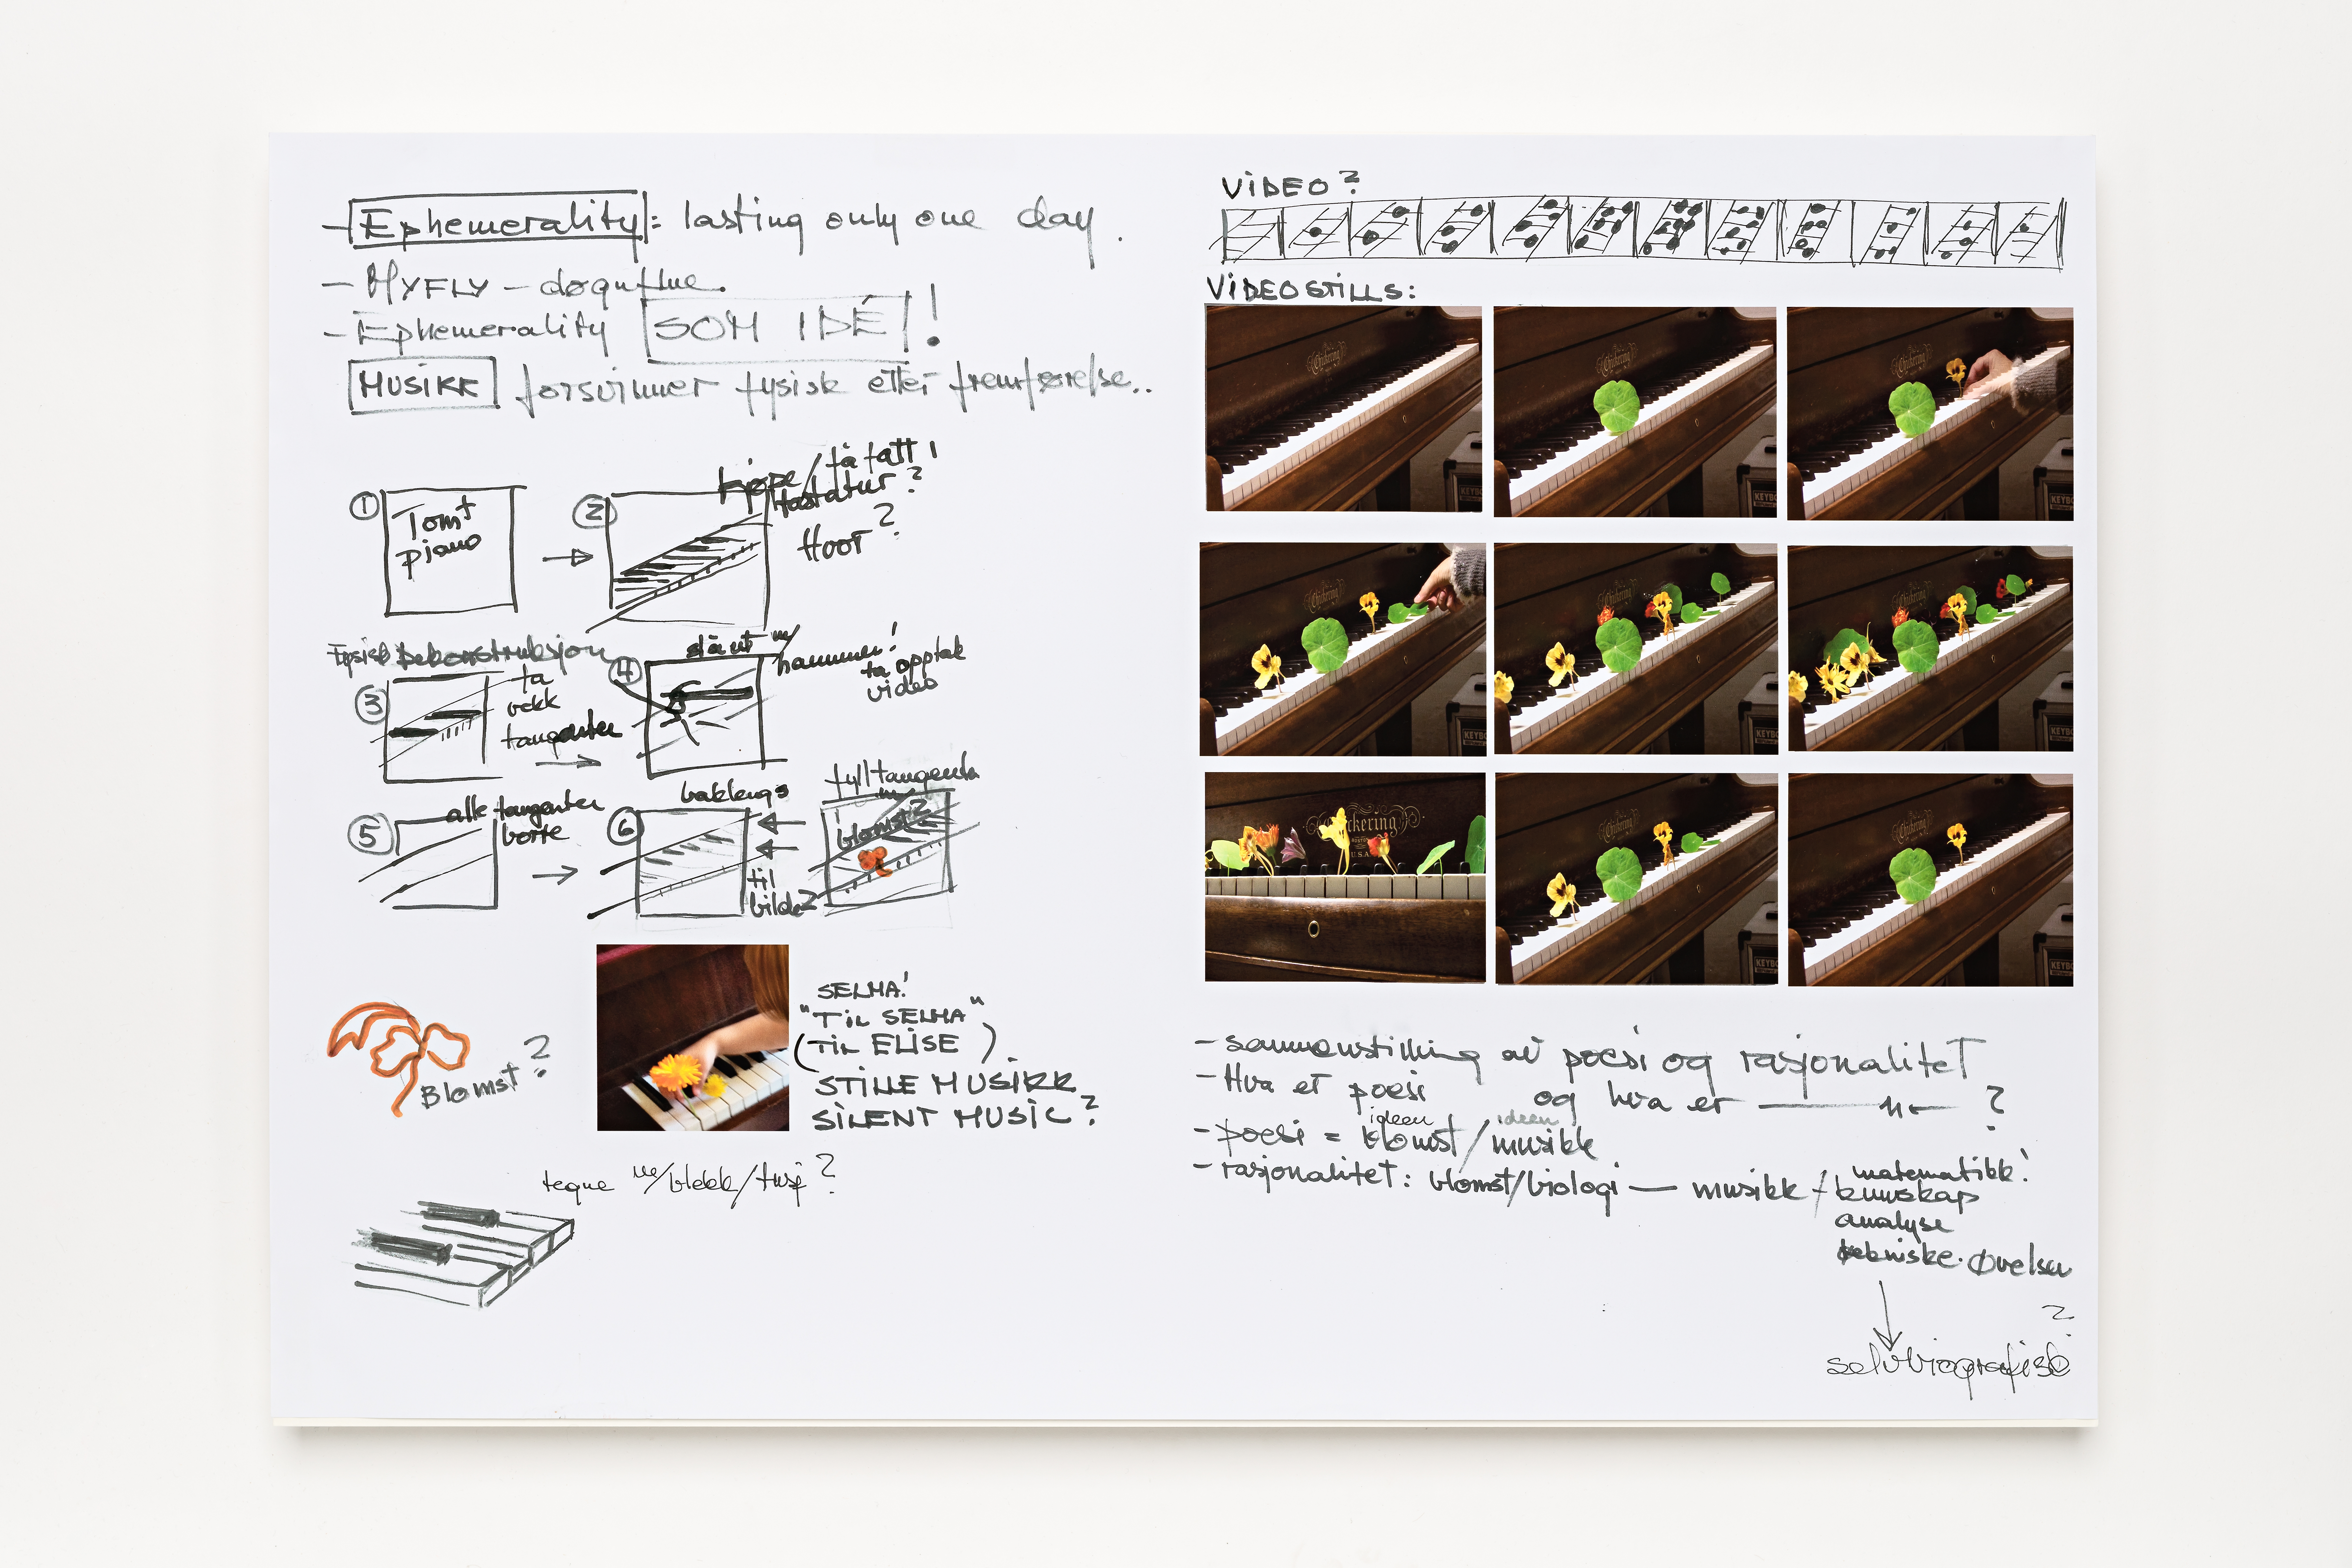 - Ephemerality: lasting only one day.
- MYFLY - døgnflue.
- Ephemerality SOM IDÉ!
MUSIKK forsvinner fysisk etter fremførelse..
① Tomt
piano
②
kjøpe/få tatt
tastatur?
Hvor?
Fysisk Dekonstruksjon
③ ta
vekk
tangenter
④ slå ut m/
hammer!
ta opptak
video
⑤ alle tangenter
borte
⑥ baklengs
til
bilde 2
fyll tangenta
m/
blomst?
Blomst?
SELMA!
"TIL SELMA"
(TIL ELISE)
STILLE MUSIKK
SILENT MUSIC?
tegne m/blekk/tusj?
VIDEO?
VIDEOSTILLS:
Chickering
Chickering
Chickering
KEYB
Chickering
KEYBO
Chickering
KEYBO
Chickering
KEYB
Chickering
U.S.A.
Chickering
KEYBO
Chickering
KEYB
- sammenstilling av poesi og rasjonalitet
- Hva er poesi og hva er —"— ?
ideen ideen
- poesi = blomst/musikk
- rasjonalitet: blomst/biologi — musikk / matematikk!
kunnskap
analyse
tekniske øvelser
?
selvbiografisk